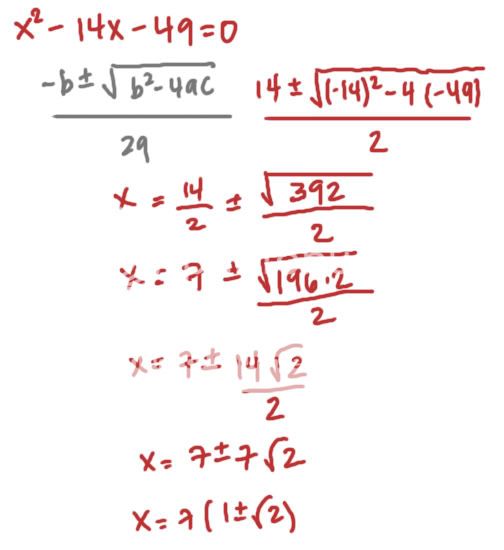 x² - 14x - 49 = 0
(-b ± √(b² - 4ac)) / 2a    (14 ± √((-14)² - 4(-49))) / 2
x = 14/2 ± √392 / 2
x = 7 ± √(196·2) / 2
x = 7 ± 14√2 / 2
x = 7 ± 7√2
x = 7(1 ± √2)